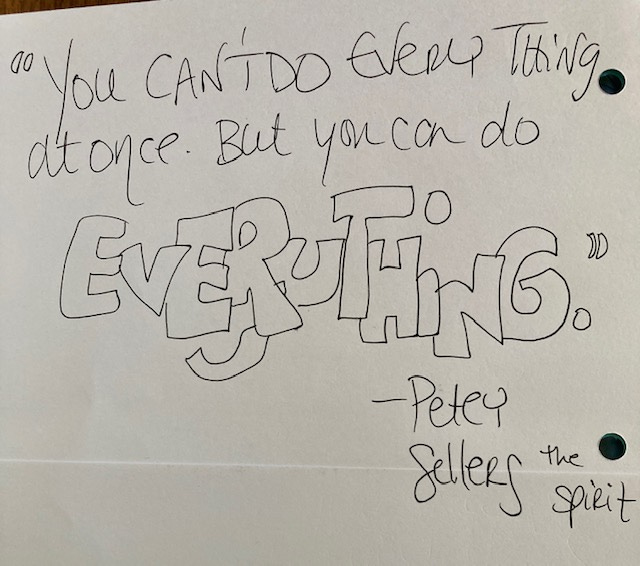 "You CAN'T DO EVERY THING
at once. But you can do
EVERYTHING."
- Peter
Sellers the
spirit